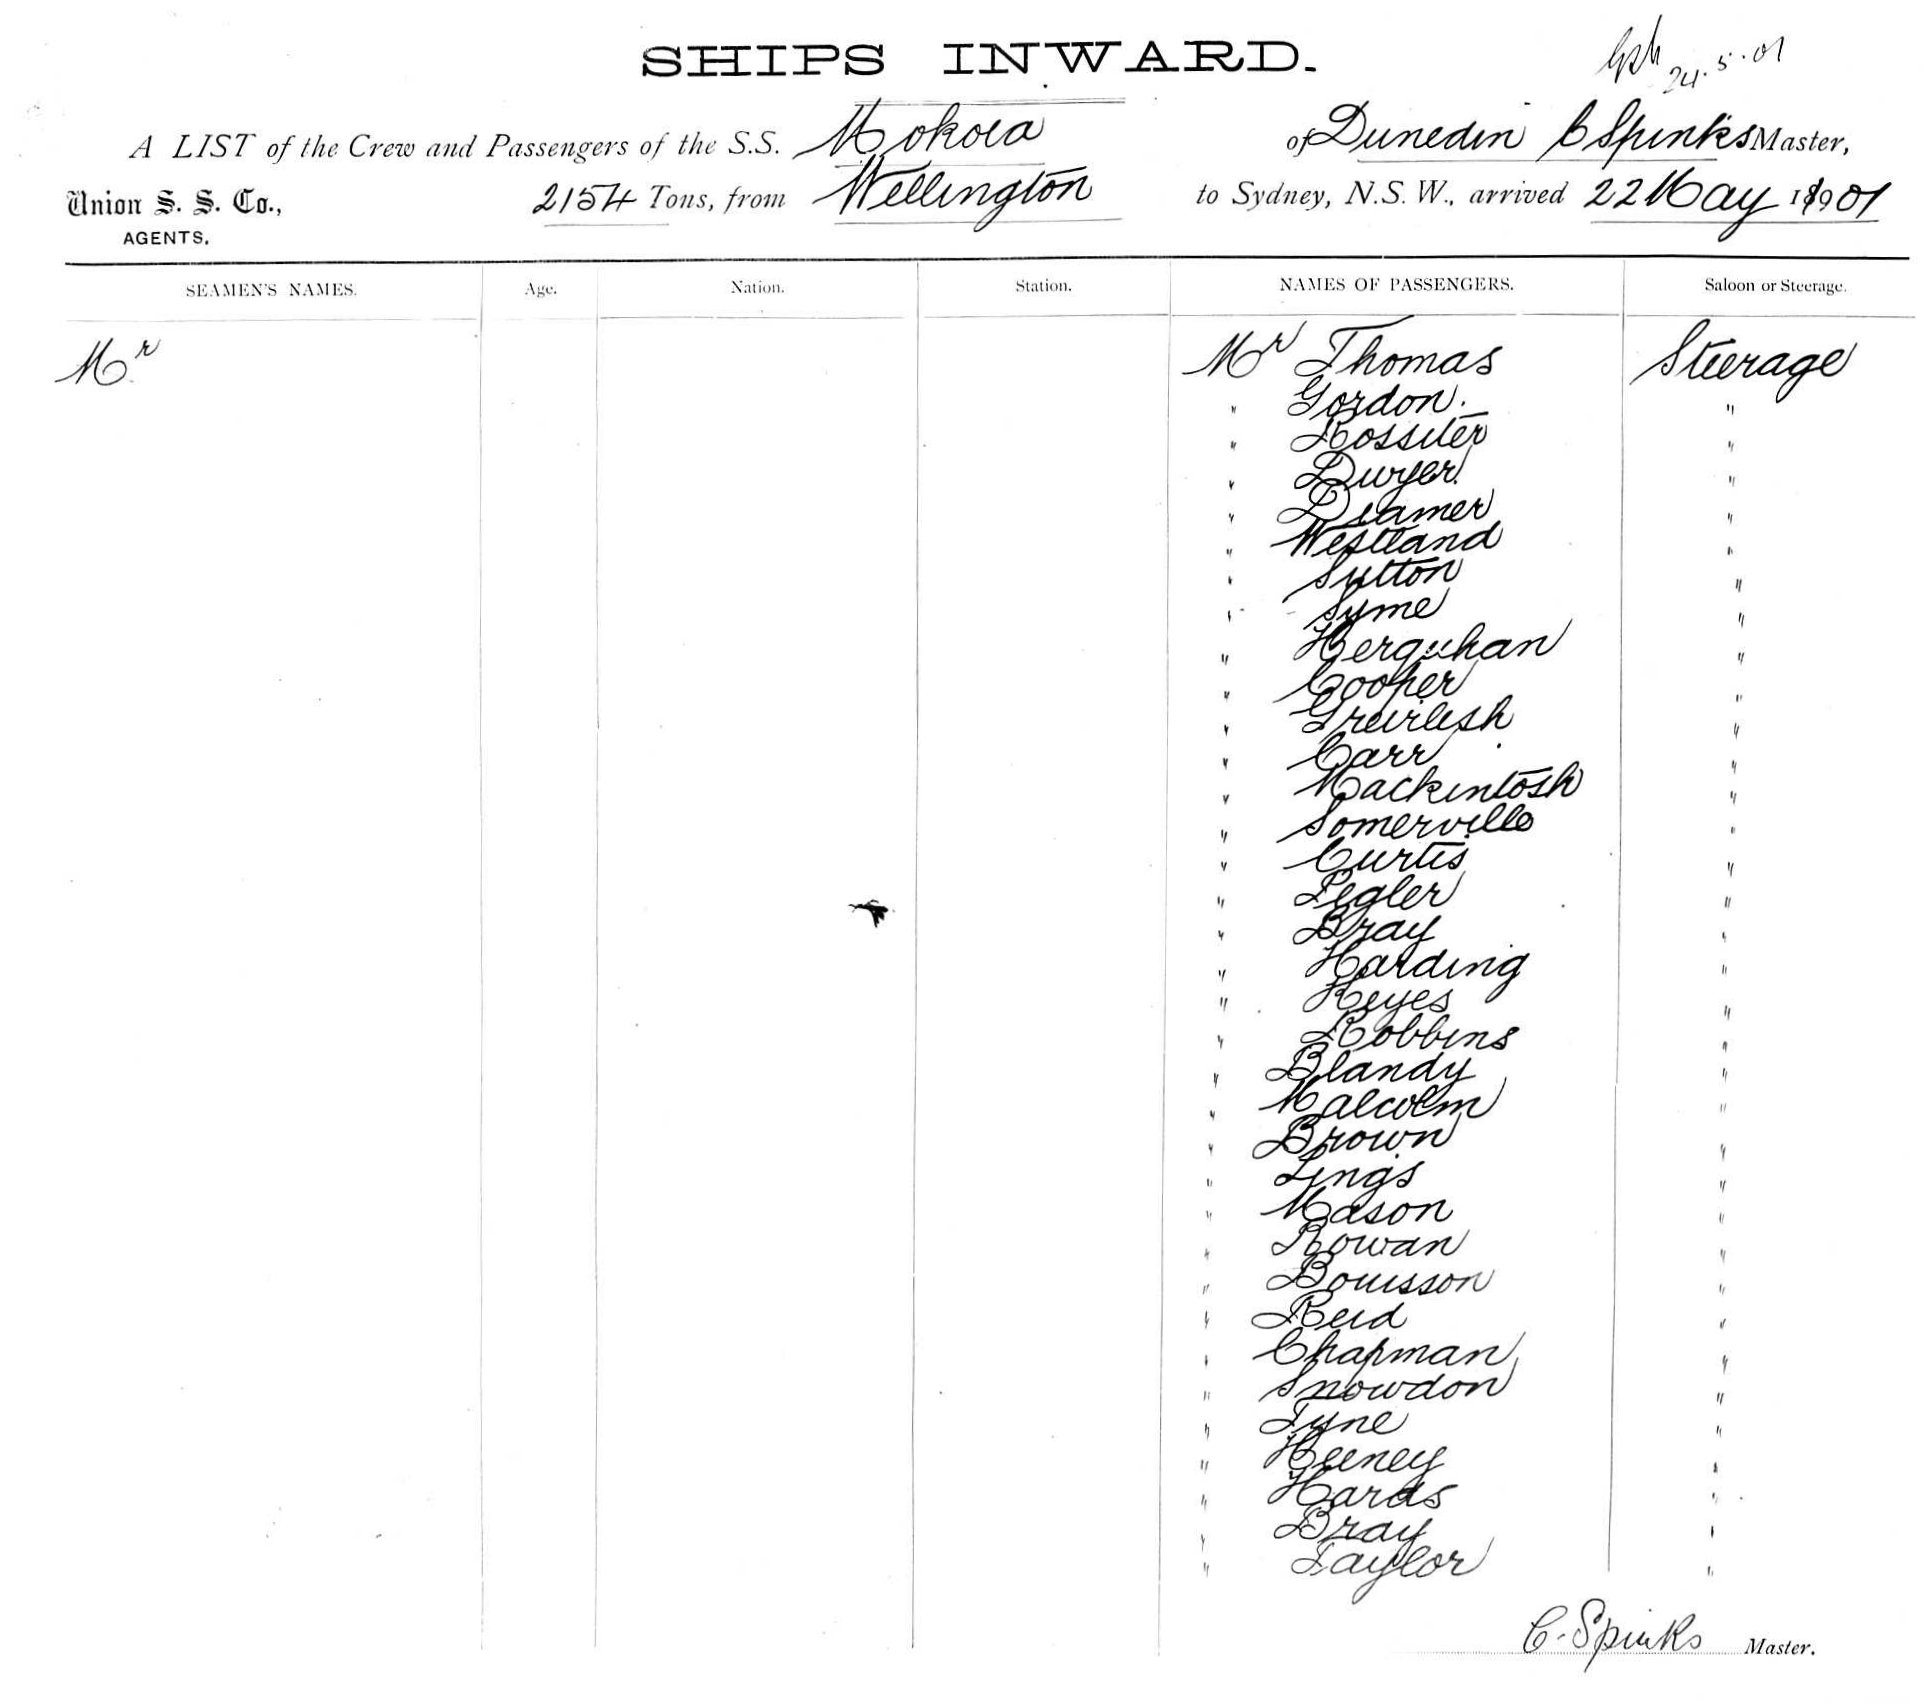 SHIPS INWARD.
24.5.01
A LIST of the Crew and Passengers of the S.S. Mokoia of Dunedin C Spinks Master,
Union S. S. Co., 2154 Tons, from Wellington to Sydney, N.S.W., arrived 22 May 1901
AGENTS.
SEAMEN'S NAMES. Age. Nation. Station. NAMES OF PASSENGERS. Saloon or Steerage.
Mr Mr Thomas Steerage
" Gordon. "
" Rossiter "
" Dwyer "
" Diamer "
" Westland "
" Sutton "
" Syme "
" "
" Cooper "
" "
" Carr "
" Mackintosh "
" Somerville "
" Curtis "
" Pegler "
" Bray "
" Harding "
" Keyes "
" Robbins "
" Blandy "
" Malcolm "
" Brown "
" Lings "
" Mason "
" Rowan "
" Bouisson "
" Reid "
" Chapman "
" Snowdon "
" Tyne "
" Heeney "
" Hards "
" Bray "
" Taylor "
C. Spinks Master.